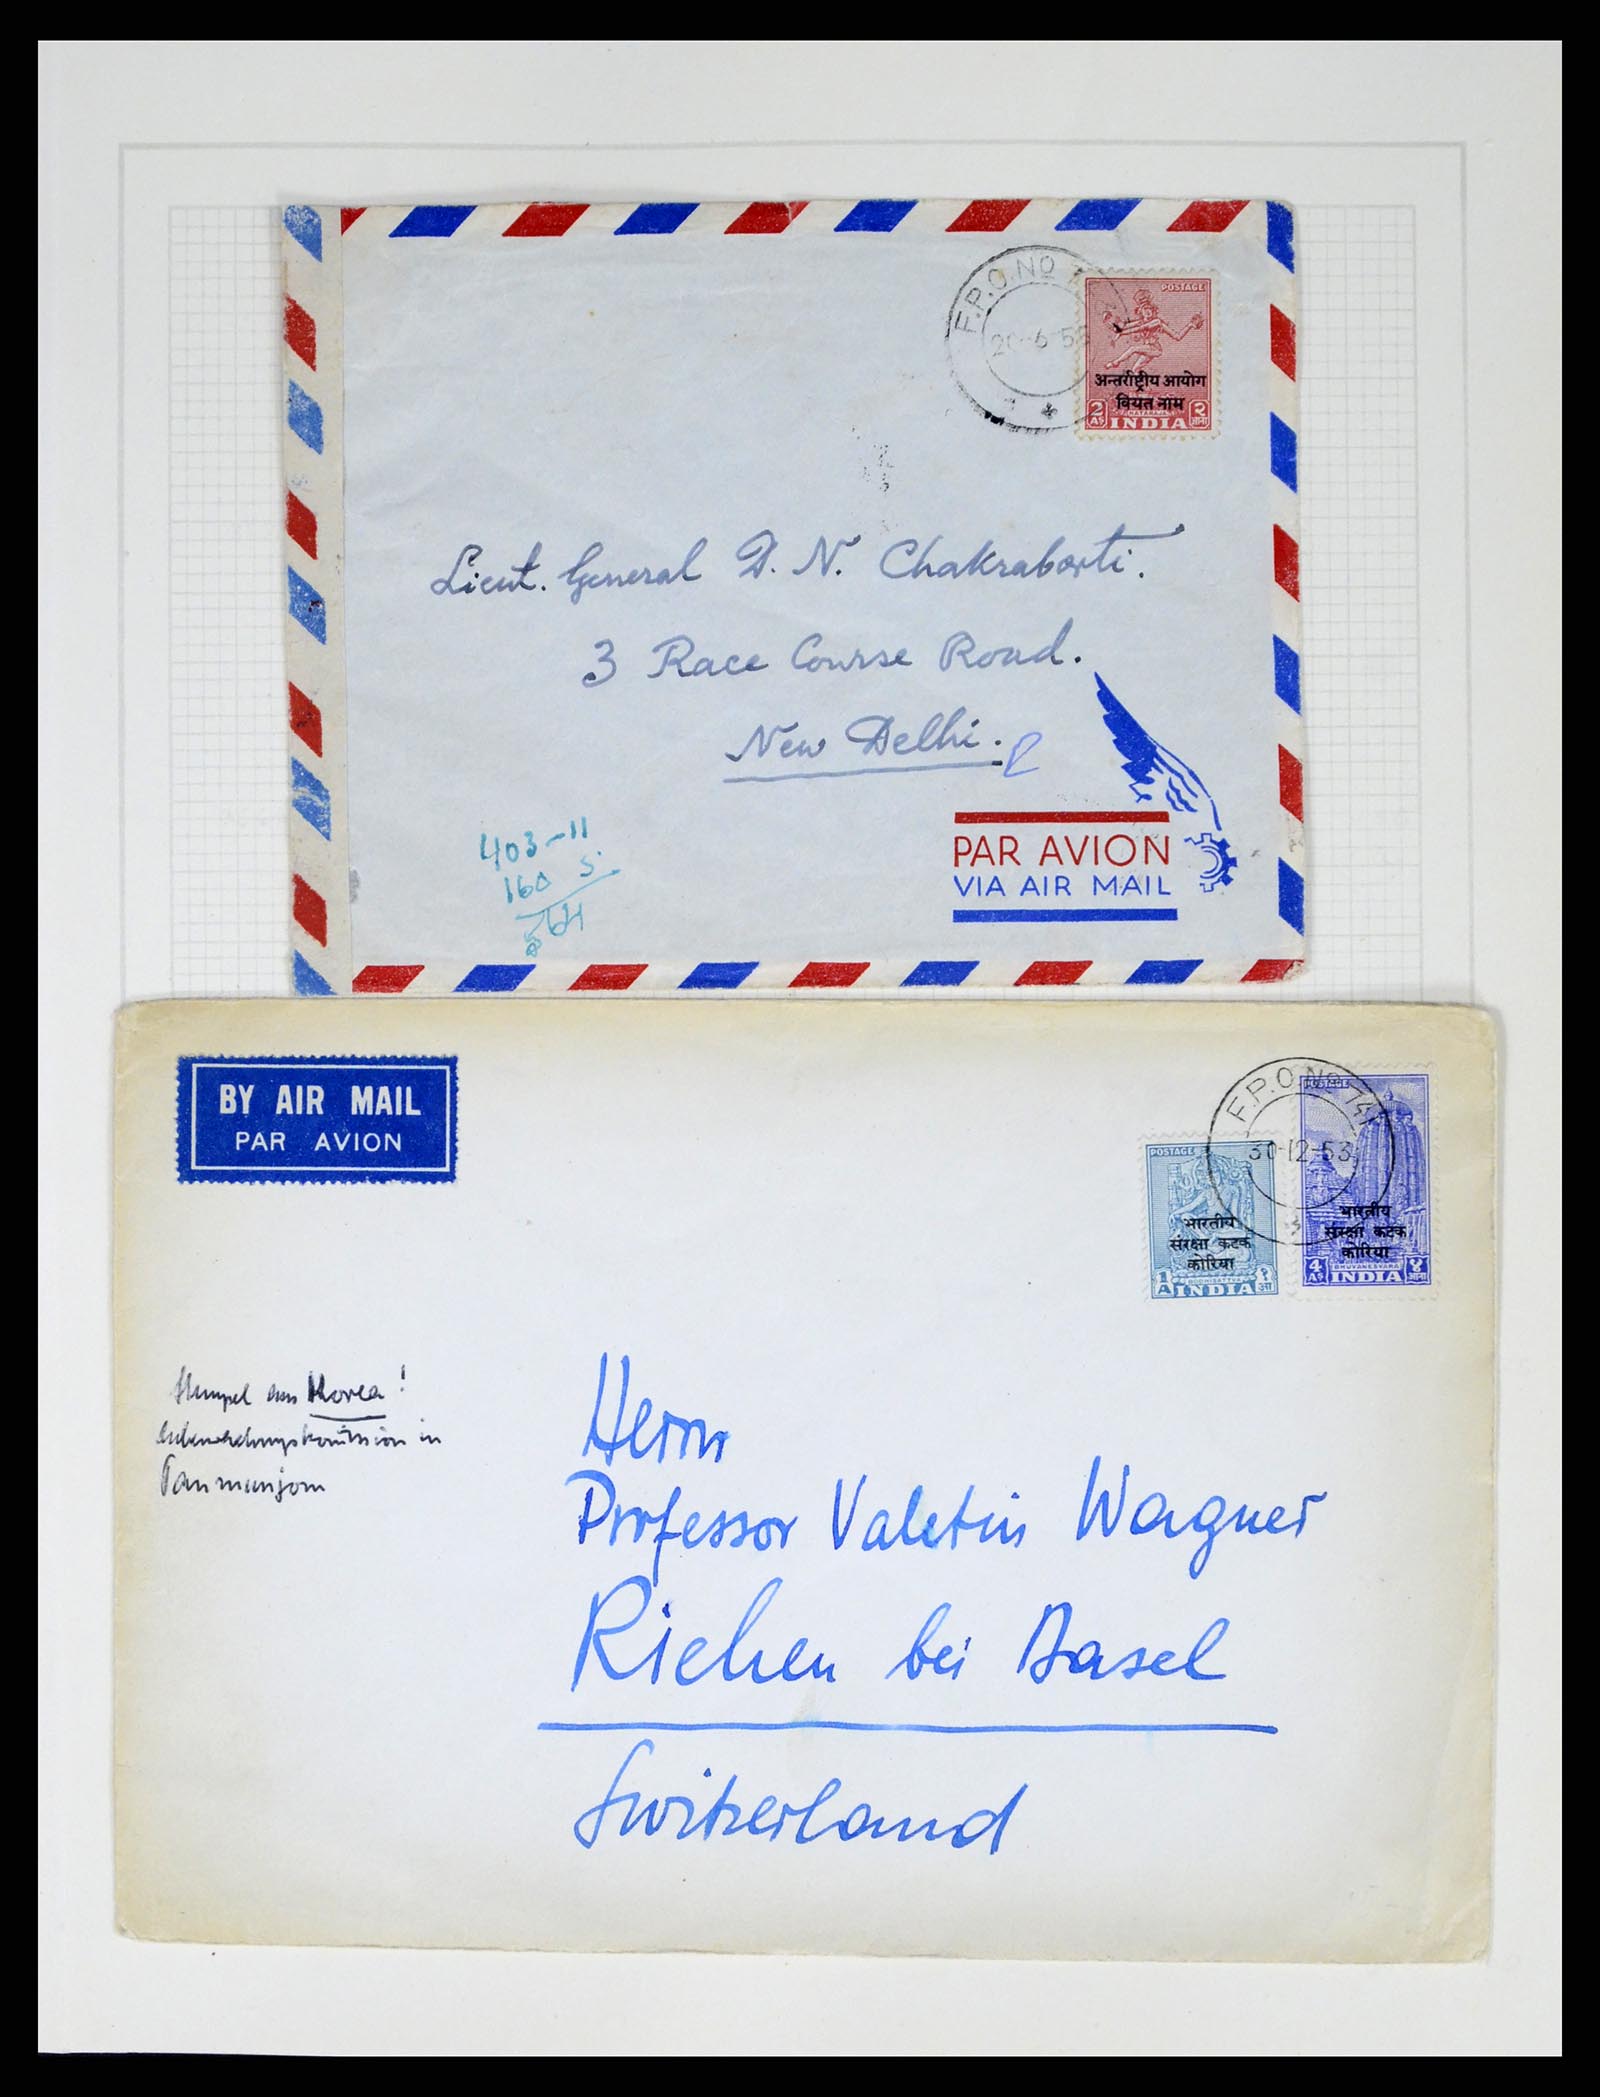 F.P.O. No
20-6-55
POSTAGE
अन्तर्राष्ट्रीय आयोग
वियत नाम
2 As NATARAJA २ आना
INDIA
Lieut. General D. N. Chakraborti.
3 Race Course Road.
New Delhi.
403-11
160 5
PAR AVION
VIA AIR MAIL
BY AIR MAIL
PAR AVION
F.P.O. No 741
30-12-53
POSTAGE
भारतीय
संरक्षा कटक
कोरिया
1 A BODHISATTVA १ आ
INDIA
POSTAGE
भारतीय
संरक्षा कटक
कोरिया
4 As BHUVANESVARA ४ आना
INDIA
Stempel aus Korea!
in
Panmunjom
Herrn
Professor Valetin Wagner
Riehen bei Basel
Switzerland